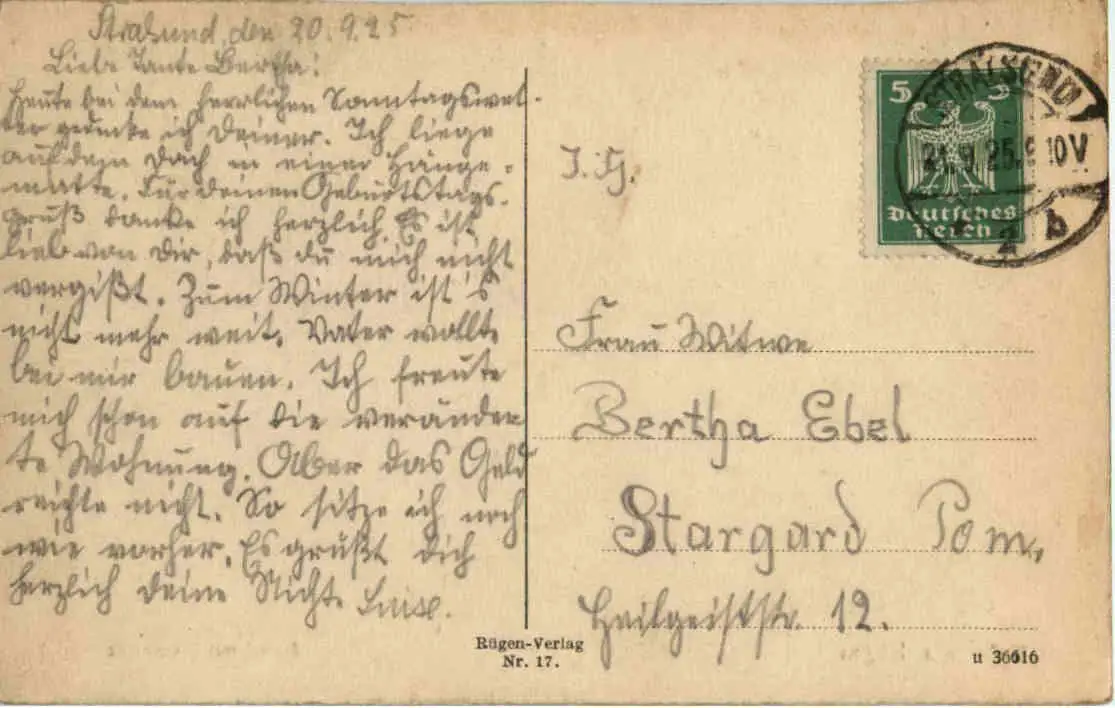 Stralsund, den 20.9.25
Liebe Tante Bertha!
Heute bei dem herrlichen Sonntagswet-
ter gedenke ich Deiner. Ich liege
auf dem Dach in einer Hänge-
matte. Für Deinen Geburtstags-
gruß danke ich herzlich. Es ist
lieb von Dir, daß du mich nicht
vergißt. Zum Winter ist's
nicht mehr weit. Vater wollte
bei mir bauen. Ich freute
mich schon auf die veränder
te Wohnung. Aber das Geld
reichte nicht. So sitze ich noch
wie vorher. Es grüßt Dich
herzlich deine Nichte Luise.
J. G.
5 5
Deutsches
Reich
STRALSUND
21.9.25. 10V
2 b
Frau Witwe
Bertha Ebel
Stargard Pom.
Heilgeiststr. 12.
Rügen-Verlag
Nr. 17.
u 36616